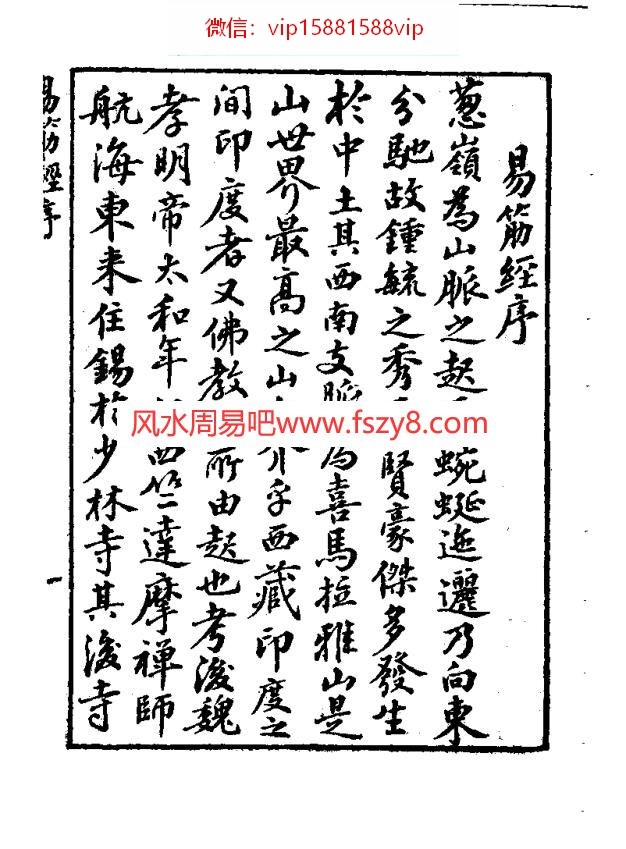 微信：vip15881588vip
易筋經序
葱嶺為山脈之起蜿蜒迤邐乃向東
分馳故鍾毓之秀賢豪傑多發生
於中土其西南支脈為喜馬拉雅山是
山世界最高之山介乎西藏印度之
間印度者又佛教所由起也考後魏
孝明帝太和年西竺達摩禪師
航海東来住錫於少林寺其後寺
易筋經序
一
风水周易吧www.fszy8.com